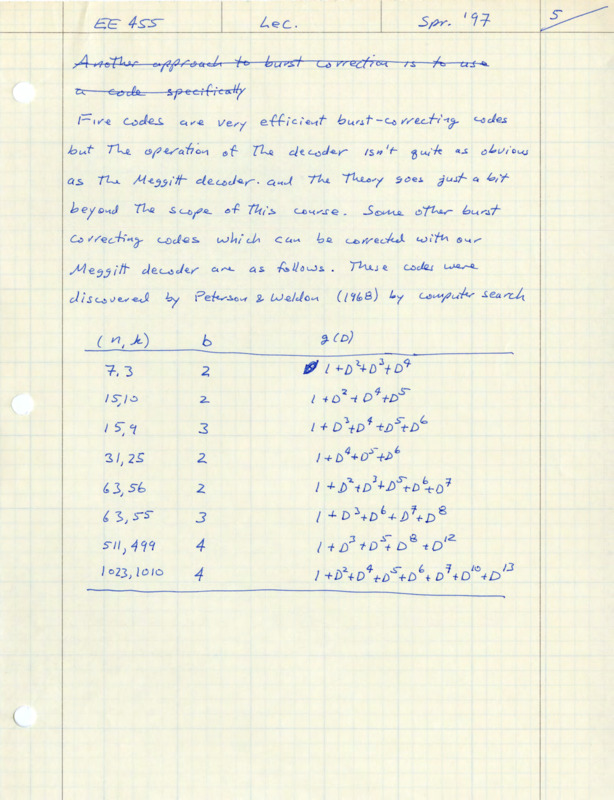 EE 455 Lec. Spr. '97 5
Another approach to burst correction is to use
a code specifically
Fire codes are very efficient burst-correcting codes
but The operation of The decoder isn't quite as obvious
as The Meggitt decoder. and The Theory goes just a bit
beyond The scope of This course. Some other burst
correcting codes which can be corrected with our
Meggitt decoder are as follows. These codes were
discovered by Peterson & Weldon (1968) by computer search
(n, k) b g(D)
7,3 2 1+D²+D³+D⁴
15,10 2 1+D²+D⁴+D⁵
15,9 3 1+D³+D⁴+D⁵+D⁶
31,25 2 1+D⁴+D⁵+D⁶
63,56 2 1+D²+D³+D⁵+D⁶+D⁷
63,55 3 1+D³+D⁶+D⁷+D⁸
511,499 4 1+D³+D⁵+D⁸+D¹²
1023,1010 4 1+D²+D⁴+D⁵+D⁶+D⁷+D¹⁰+D¹³